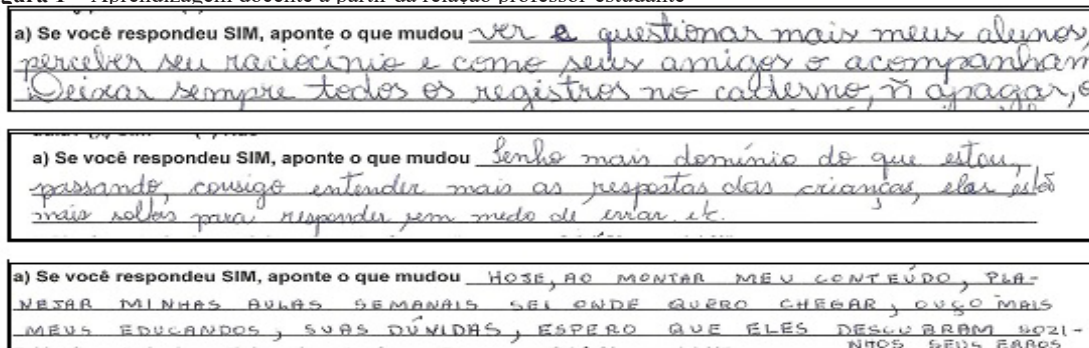 Aprendizagem docente a partir da relação professor-estudante
a) Se você respondeu SIM, aponte o que mudou ver e questionar mais meus alunos,
perceber seu raciocínio e como seus amigos o acompanham
Deixar sempre todos os registros no caderno, ñ apagar,
a) Se você respondeu SIM, aponte o que mudou Tenho mais domínio do que estou,
passando, consigo entender mais as respostas das crianças, elas estão
mais soltas para, responder sem medo de errar. etc.
a) Se você respondeu SIM, aponte o que mudou HOJE, AO MONTAR MEU CONTEÚDO, PLA-
NEJAR MINHAS AULAS SEMANAIS SEI ONDE QUERO CHEGAR, OUÇO MAIS
MEUS EDUCANDOS, SUAS DÚVIDAS, ESPERO QUE ELES DESCUBRAM SOZI-
NHOS SEUS ERROS